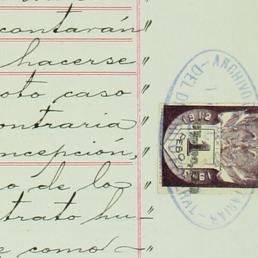 contarán
hacerse
oto caso
ontraria
ncepción,
o de lo
trato hu-
e como
ARCHIVO
DEL D
1912
1
1913